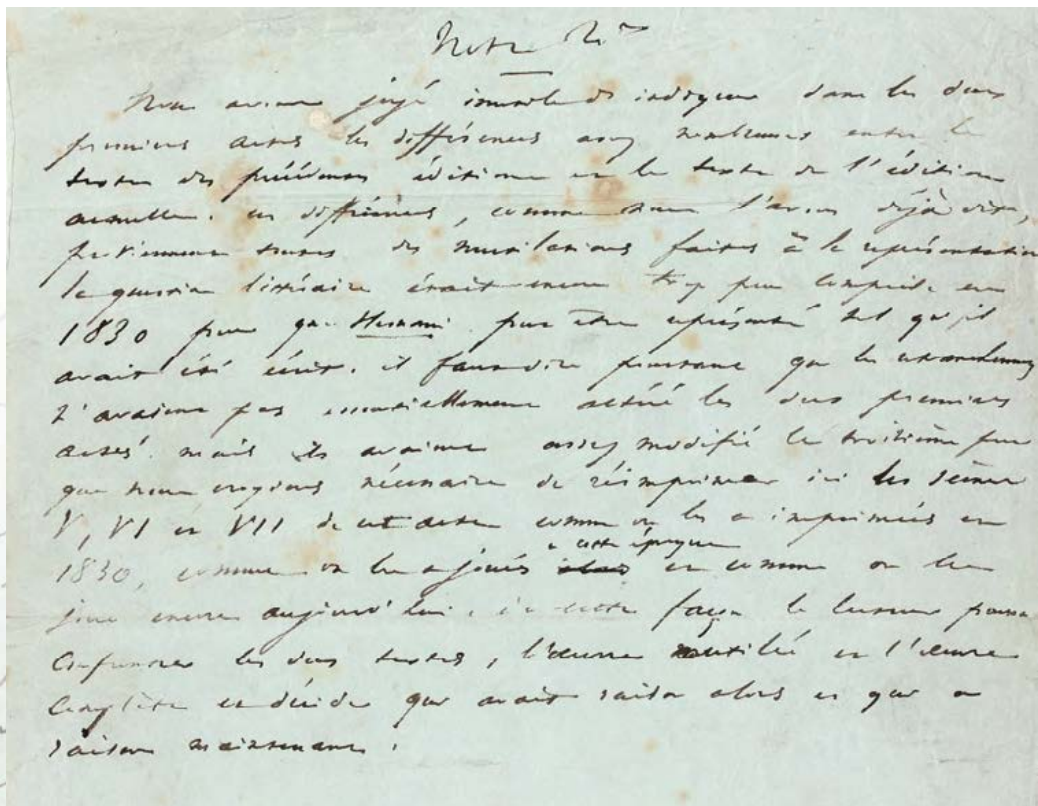 Note 2me
Nous avions jugé inutile d'indiquer dans les deux
premiers actes les différences assez nombreuses entre le
texte des précédentes éditions et le texte de l'édition
actuelle. ces différences, comme nous l'avons déjà dit,
proviennent toutes des mutilations faites à la représentation
la question littéraire était encore trop peu comprise en
1830 pour que Hernani pût être représenté tel qu'il
avait été écrit. il faut dire pourtant que les retranchements
n'avaient pas essentiellement altéré les deux premiers
actes. mais ils avaient assez modifié le troisième pour
que nous croyions nécessaire de réimprimer ici les scènes
V, VI et VII de cet acte comme on les a imprimées en
à cette époque
1830, comme on les a jouées alors et comme on les
joue encore aujourd'hui. de cette façon le lecteur pourra
confronter les deux textes, l'œuvre mutilée et l'œuvre
complète et décider qui avait raison alors et qui a
raison maintenant.